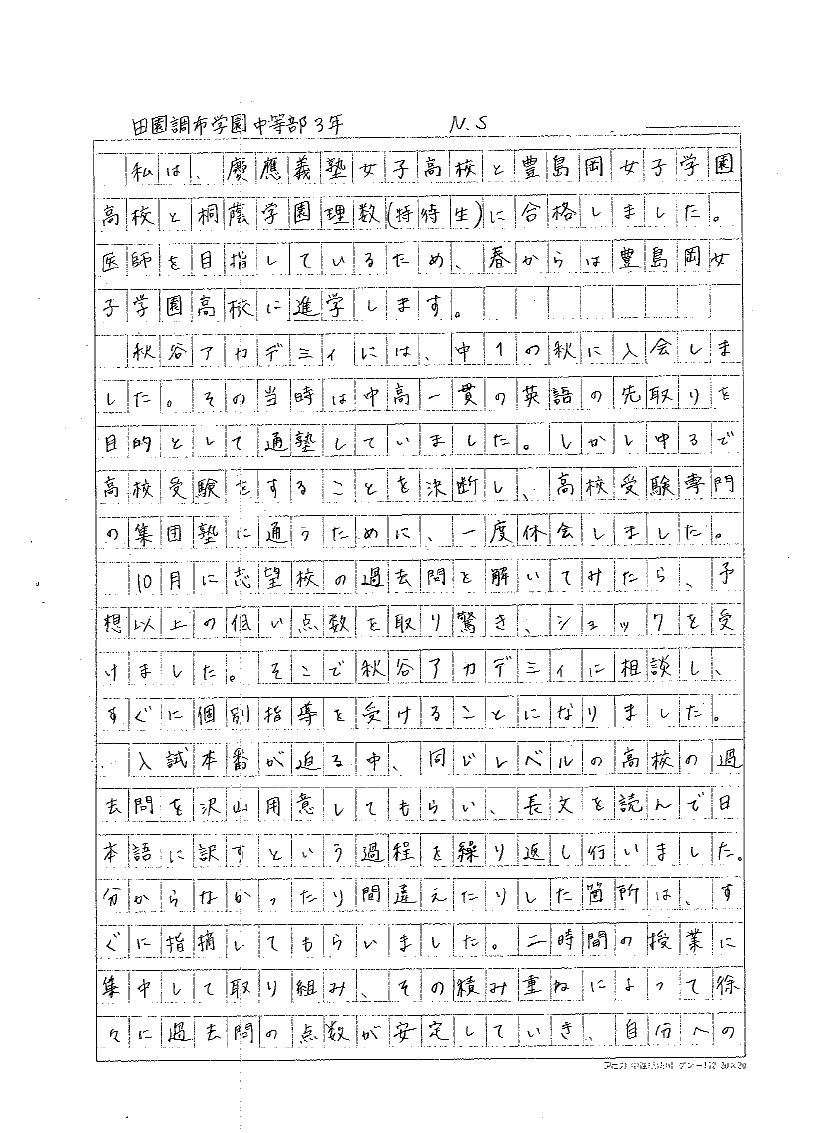 田園調布学園中等部3年 N.S
私は、慶應義塾女子高校と豊島岡女子学園
高校と桐蔭学園理数(特待生)に合格しました。
医師を目指しているため、春からは豊島岡女
子学園高校に進学します。
秋谷アカデミィには、中1の秋に入会しま
した。その当時は中高一貫の英語の先取りを
目的として通塾していました。しかしゆるで
高校受験をすることを決断し、高校受験専門
の集団塾に通うために、一度休会しました。
10月に志望校の過去問を解いてみたら、予
想以上の低い点数を取り驚き、ショックを受
けました。そこで秋谷アカデミィに相談し、
すぐに個別指導を受けることになりました。
入試本番が迫る中、同じレベルの高校の過
去問を沢山用意してもらい、長文を読んで日
本語に訳すという過程を繰り返し行いました。
分からなかったり間違えたりした箇所は、す
ぐに指摘してもらいました。二時間の授業に
集中して取り組み、その積み重ねによって徐
々に過去問の点数が安定していき、自分への
20×20